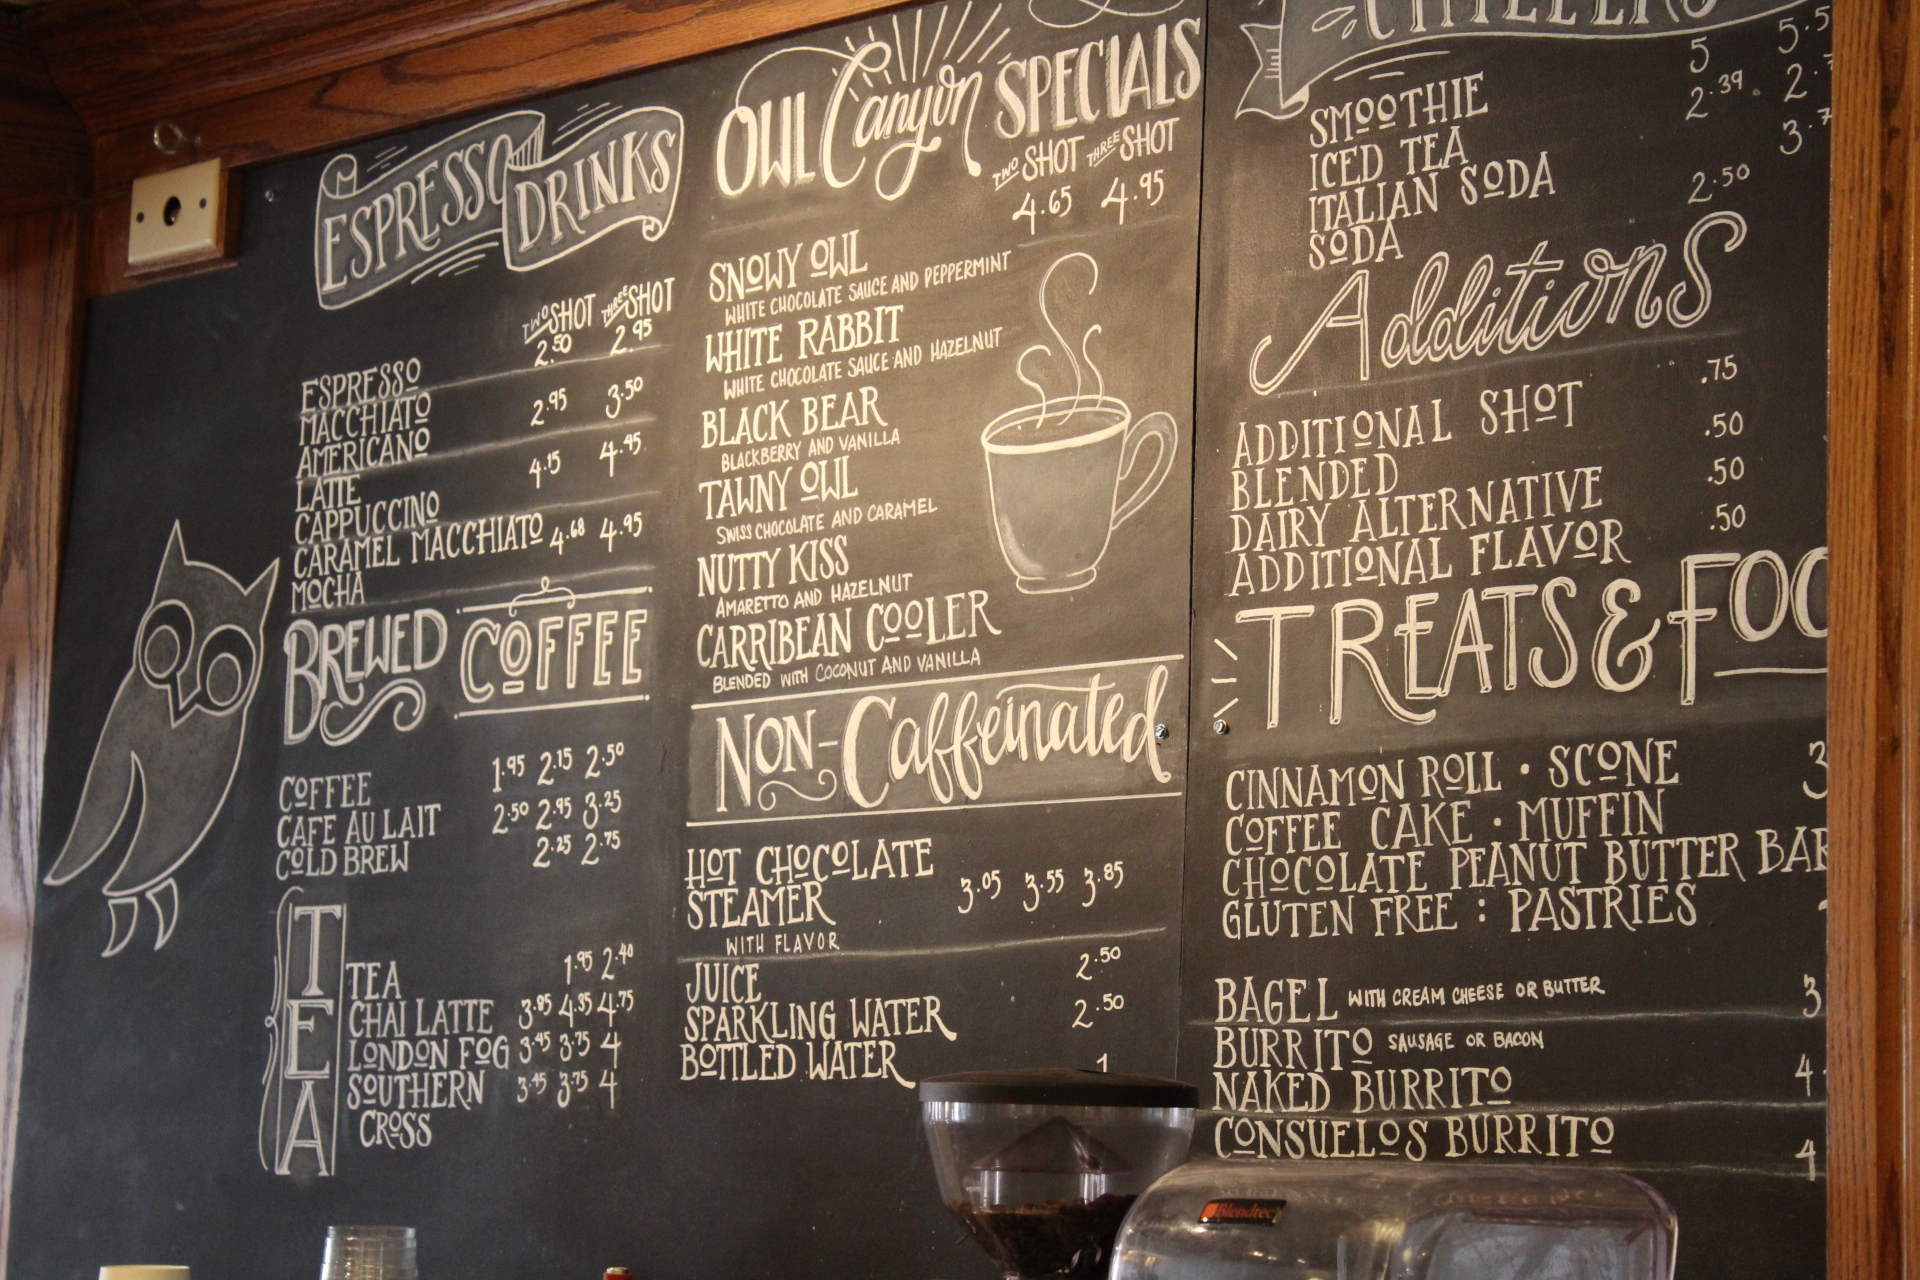 ESPRESSO DRINKS
TWO SHOT THREE SHOT
2.50 2.95
ESPRESSO
MACCHIATO 2.95 3.50
AMERICANO
LATTE 4.15 4.45
CAPPUCCINO
CARAMEL MACCHIATO 4.68 4.95
MOCHA
BREWED COFFEE
COFFEE 1.95 2.15 2.50
CAFE AU LAIT 2.50 2.95 3.25
COLD BREW 2.25 2.75
TEA
TEA 1.95 2.40
CHAI LATTE 3.85 4.35 4.75
LONDON FOG 3.45 3.75 4
SOUTHERN 3.45 3.75 4
CROSS
OWL Canyon SPECIALS
TWO SHOT THREE SHOT
4.65 4.95
SNOWY OWL
WHITE CHOCOLATE SAUCE AND PEPPERMINT
WHITE RABBIT
WHITE CHOCOLATE SAUCE AND HAZELNUT
BLACK BEAR
BLACKBERRY AND VANILLA
TAWNY OWL
SWISS CHOCOLATE AND CARAMEL
NUTTY KISS
AMARETTO AND HAZELNUT
CARRIBEAN COOLER
BLENDED WITH COCONUT AND VANILLA
NON-Caffeinated
HOT CHOCOLATE
STEAMER 3.05 3.55 3.85
WITH FLAVOR
JUICE 2.50
SPARKLING WATER 2.50
BOTTLED WATER 1
SMOOTHIE 5 5.5
ICED TEA 2.39 2.
ITALIAN SODA 3.7
SODA 2.50
Additions
ADDITIONAL SHOT .75
BLENDED .50
DAIRY ALTERNATIVE .50
ADDITIONAL FLAVOR .50
TREATS & FOO
CINNAMON ROLL • SCONE 3
COFFEE CAKE • MUFFIN
CHOCOLATE PEANUT BUTTER BAR
GLUTEN FREE : PASTRIES
BAGEL WITH CREAM CHEESE OR BUTTER 3
BURRITO SAUSAGE OR BACON
NAKED BURRITO 4
CONSUELOS BURRITO 4
Blendtec